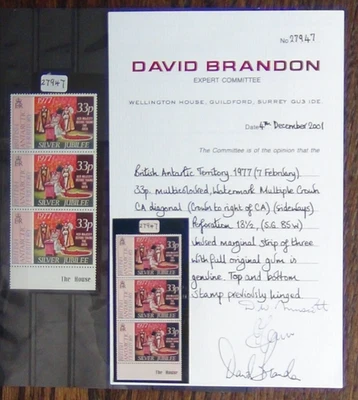 27947
1977
33p
SILVER JUBILEE
1977
33p
SILVER JUBILEE
1977
33p
SILVER JUBILEE
The House
No 27947
DAVID BRANDON
EXPERT COMMITTEE
WELLINGTON HOUSE, GUILDFORD, SURREY GU3 IDE.
Date 4th December 2001
The Committee is of the opinion that the
British Antartic Territory. 1977 (7 February)
33p. multicoloured, Watermark Multiple Crown
CA diagonal (Crown to right of CA) (sideways)
Perforation 13½, (S.G. 85w)
Unused marginal strip of three
with full original gum is
genuine. Top and bottom
stamp previously hinged
27947
33p
SILVER JUBILEE
33p
SILVER JUBILEE
33p
SILVER JUBILEE
The House
David Brandon